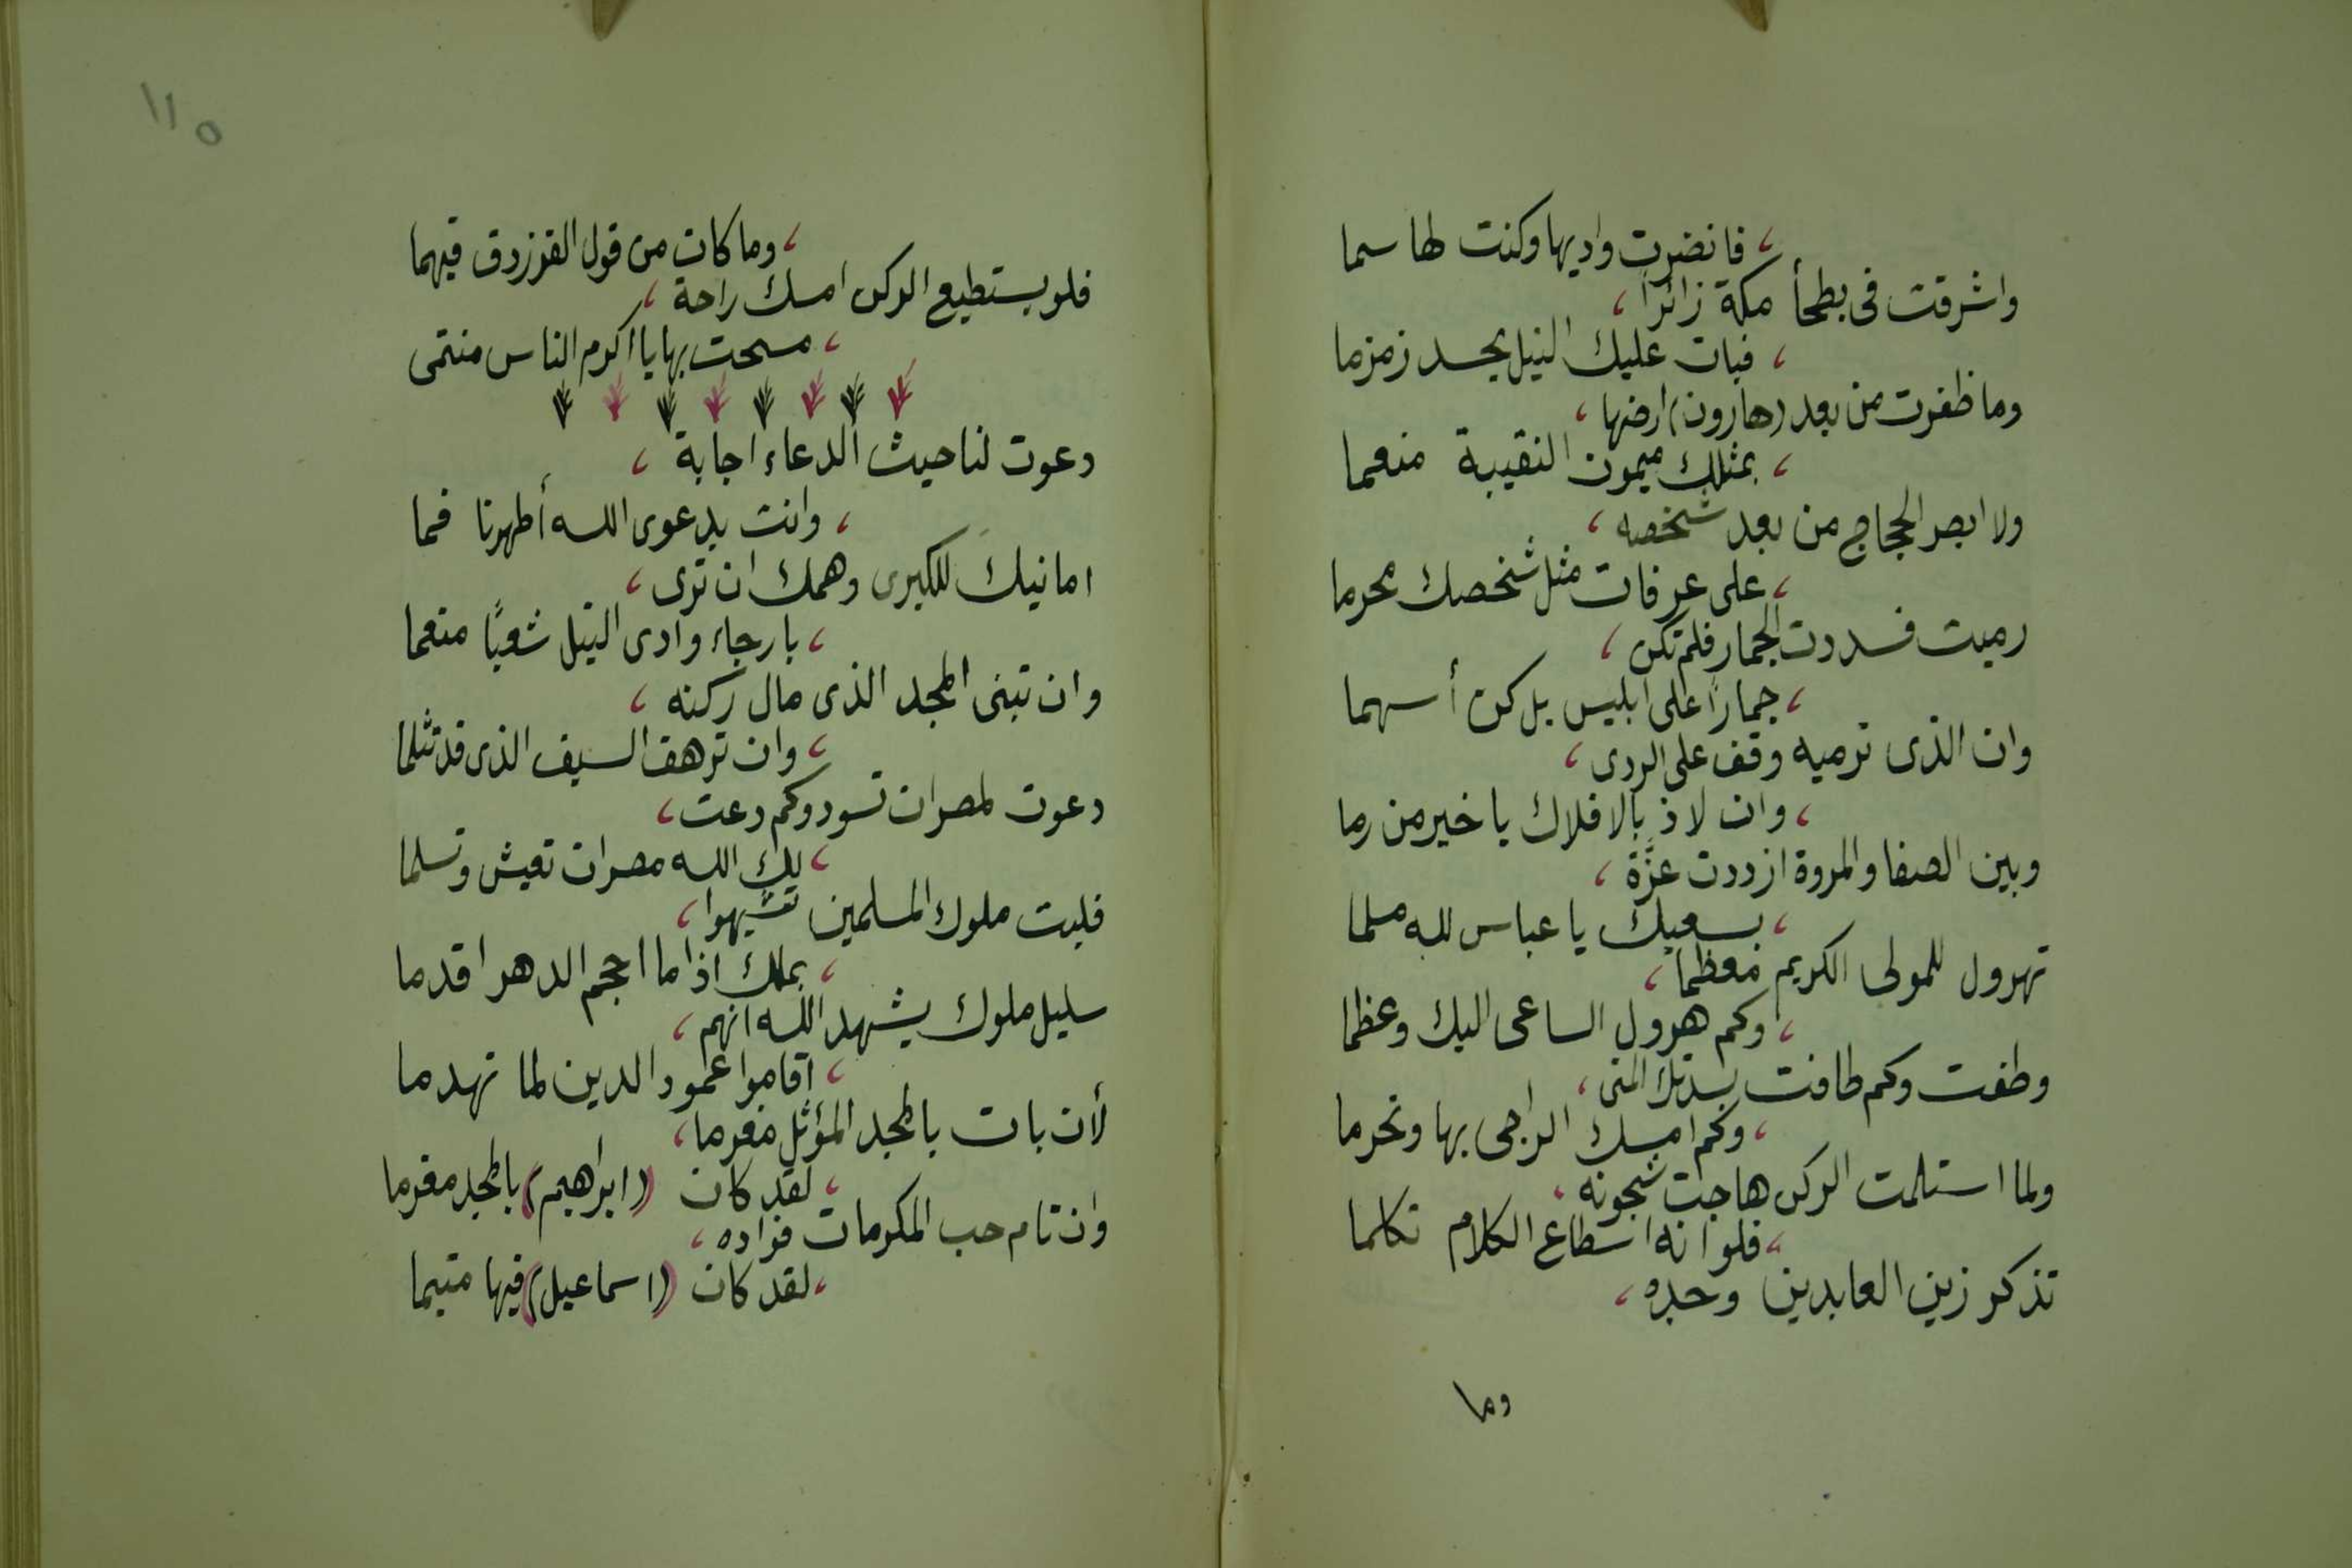 ، فانضرت واديها وكنت لها سما
واشرقت فى بطحأ مكة زائرا ،
، فبات عليك النيل يحسد زمزما
وما ظفرت من بعد (هارون) ارضها ،
، بمثلك ميمون النقيبة منعما
ولا ابصر الحجاج من بعد شخصه ،
، على عرفات مثل شخصك محرما
رميت فسددت الجمار فلم تكن ،
، جمارًا على ابليس بل كن أسهما
وان الذى ترميه وقف على الردى ،
، وان لاذ بالافلاك يا خير من رما
وبين الصفا والمروة ازددت عزّة ،
، بسعيك يا عباس لله مسلما
تهرول للمولى الكريم معظما ،
، وكم هرول الساعى اليك وعظما
وطفت وكم طافت بسدتك المنى ،
، وكم امسك الراجى بها وتحرما
ولما استلمت الركن هاجت شجونه ،
، فلو انه اسطاع الكلام تكلما
تذكر زين العابدين وحده ،
وما
١١٥
، وما كان من قول الفرزدق فيهما
فلو يستطيع الركن امسك راحة ،
، مسحت بها يا اكرم الناس منتمى
دعوت لنا حيث الدعاء اجابة ،
، وانت بدعوى الله أطهرنا فما
امانيك للكبرى وهمك ان ترى ،
، بارجاء وادى النيل شعبًا منعما
وان تبنى المجد الذى مال ركنه ،
، وان ترهف السيف الذى قد تثلما
دعوت لمصر ان تسود وكم دعت ،
، لك الله مصر ان تعيش وتسلما
فليت ملوك المسلمين تشبهوا ،
، بملك اذا ما احجم الدهر اقدما
سليل ملوك يشهد الله انهم ،
، اقاموا عمود الدين لما تهدما
لأن بات بالمجد المؤثل مغرما ،
، لقد كان (ابراهيم) بالمجد مغرما
وان تام حب المكرمات فواده ،
، لقد كان (اسماعيل) فيها متيما